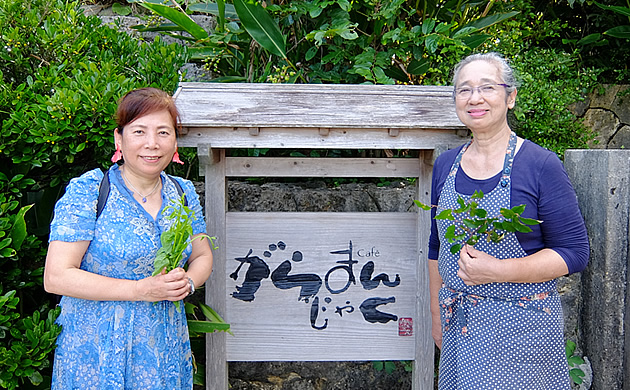 Café
がらまん
じゃく